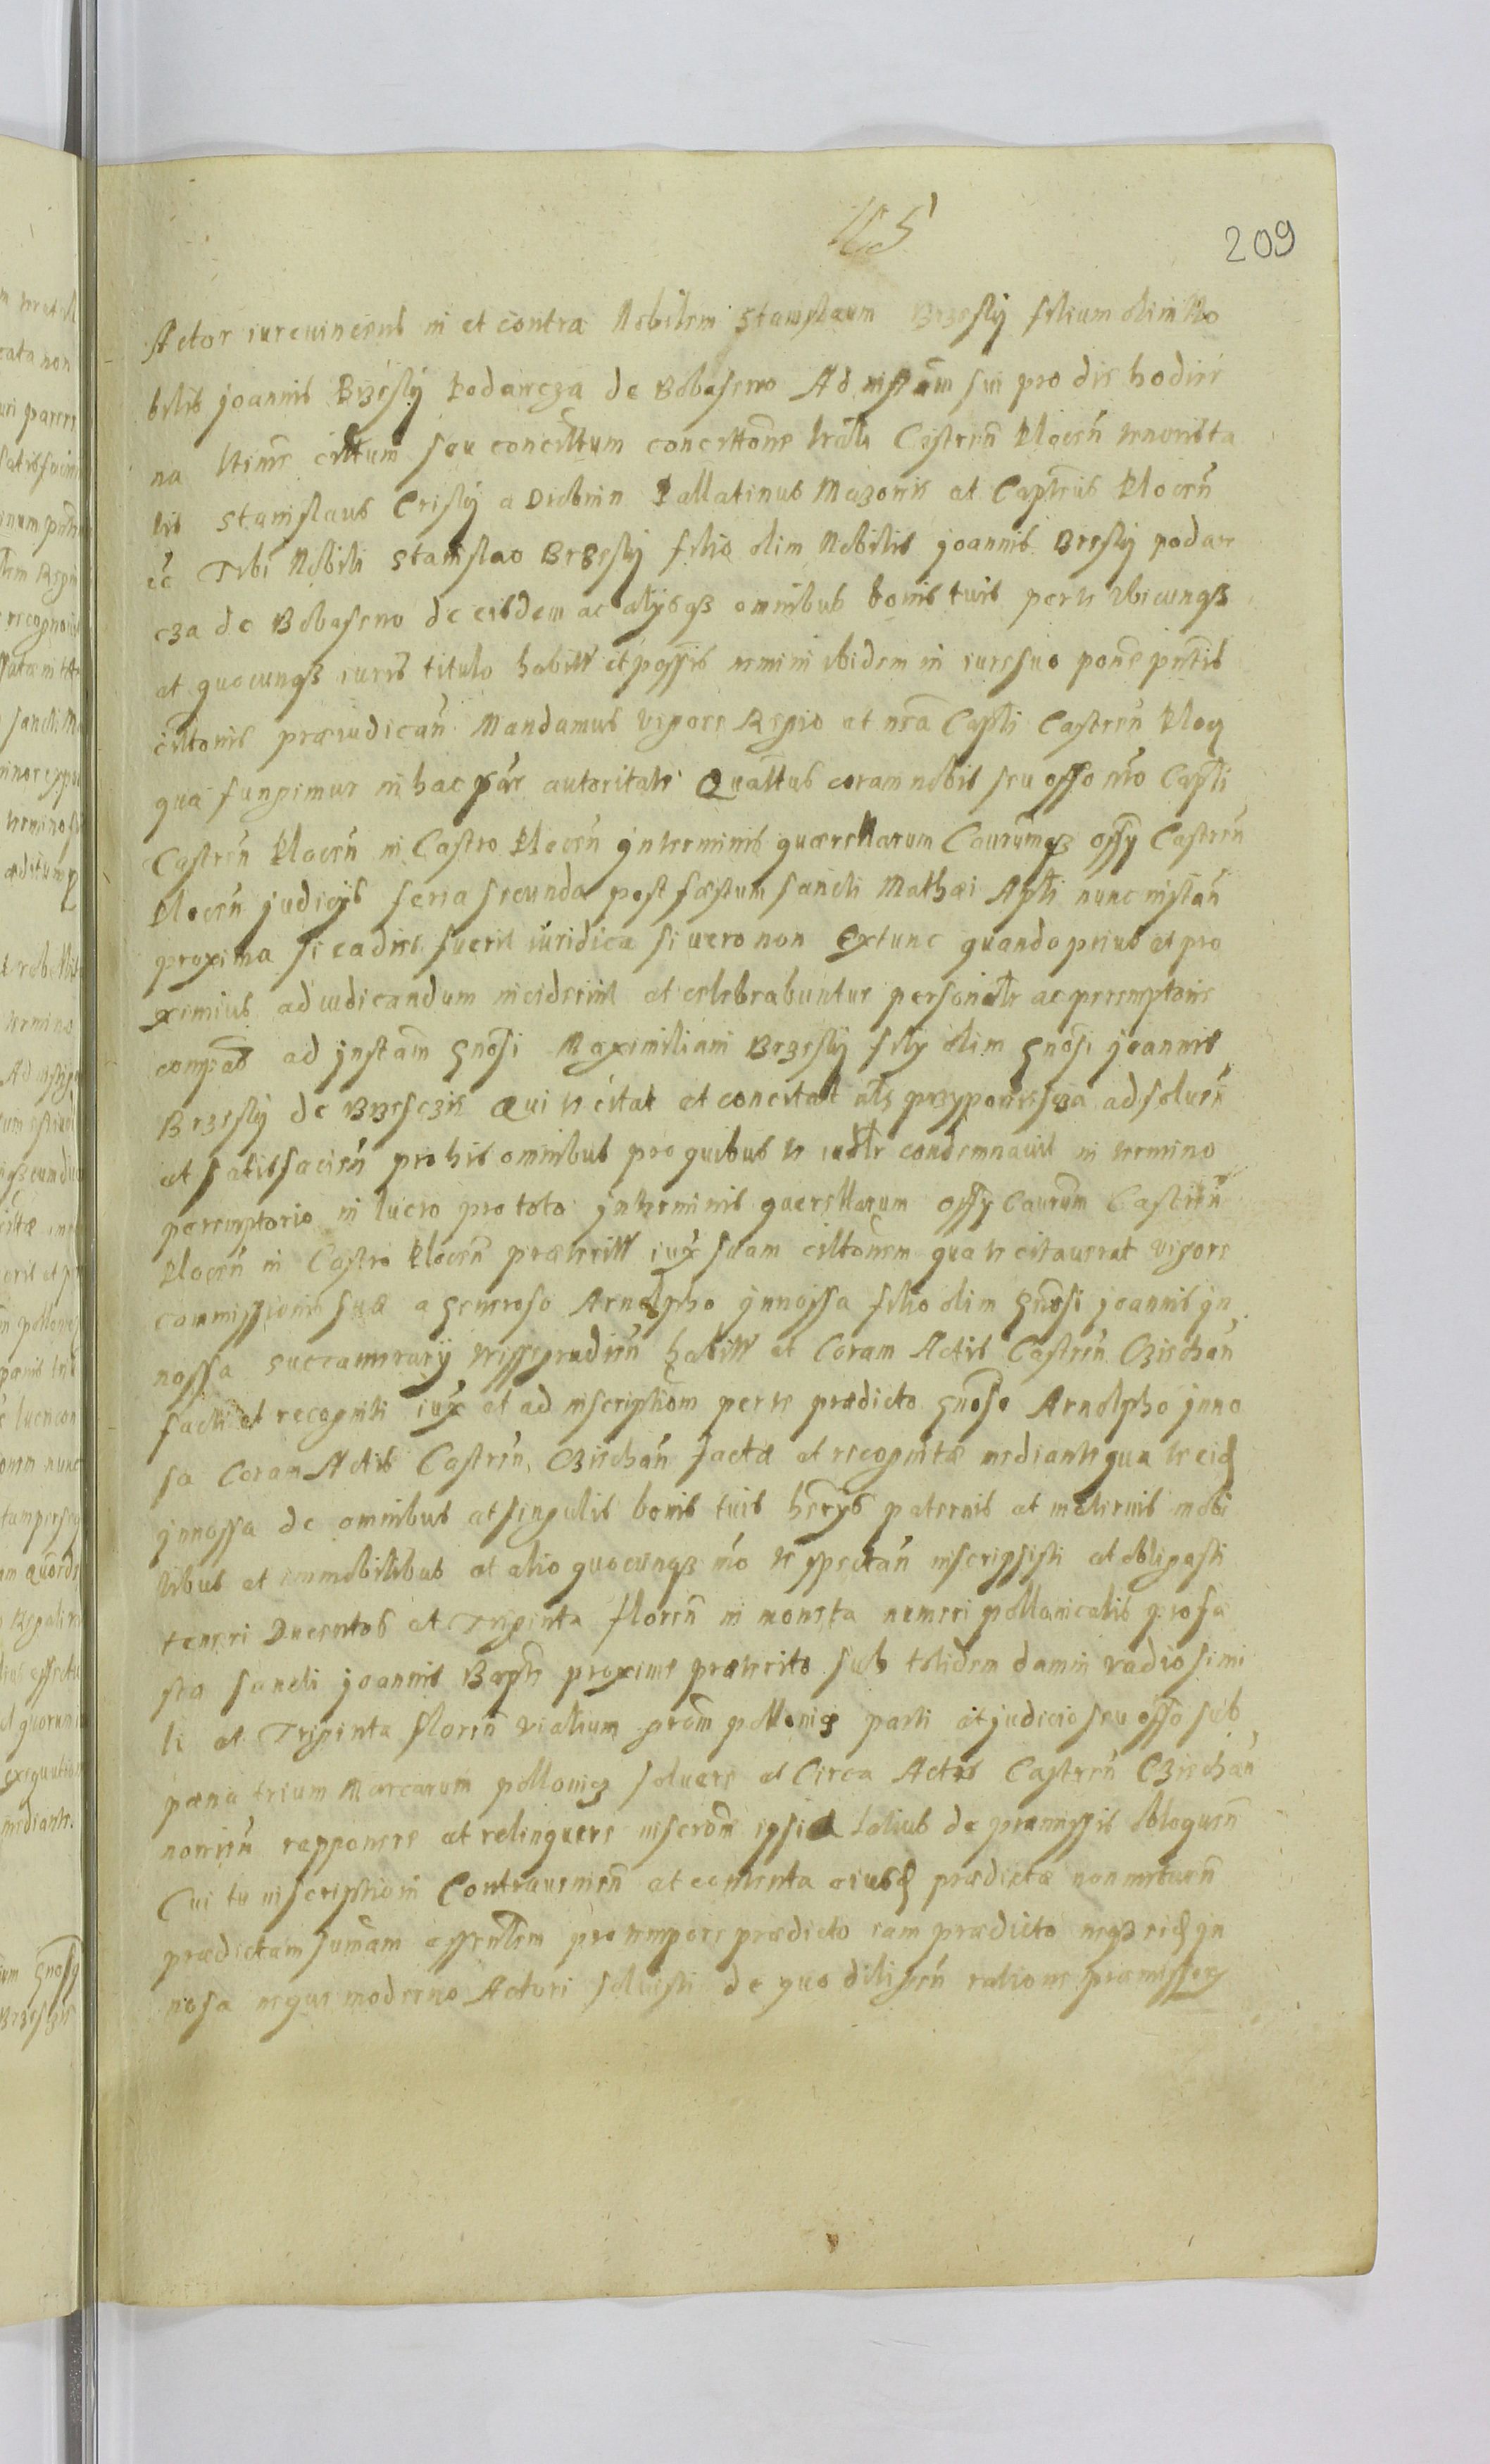 209
Actor iurevincens in et contra Nobilem Stanislaum Brzesky filium olim No
bilis Joannis Brzesky Podarcza de Bobosewo Ad instam sui pro die hodier
na ltime citatum seu concitatum concittone tralis Castren Plocen tenoris ta
lis Stanislaus Crisky a Drobnin Pallatinus Mazoviæ et Captneus Plocen
ec Tibi Nobili Stanislao Brzesky filio olim Nobilis Joannis Bresky podar
cza de Bobosewo de eisdem ac alysqz omnibus bonis tuis per te vbicunqz
et quocunqz iuris titulo habitt et possis nemini ibidem in iure suo pone pntis
cittonis præiudican Mandamus vigore Regio et nra Capli Castren Plocz
qua fungimur in hac par autoritate Quattus coram nobis seu offo nro Capli
Castren Plocen in Castro Plocen in terminis quærellarum Caurumqz offy Castren
Plocen judicijs feria secunda post fæstum sancti Mathæi Apli nunc instan
proxima si ea dies fuerit iuridica si uero non Extunc quando prius et pro
ximius ad iudicandum inciderint et celebrabuntur personalr ac peremptorie
compas ad jnstam gnosi Maximiliani Brzesky fily olim gnosi joannis
Brzesky de Brzesczie Qui te citat et concitat als przypowiescza ad soluen
et satisfacien pro his omnibus pro quibus te iudlr condemnauit in termino
peremptorio in lucro pro toto jn terminis querellarum offy Caurum Castren
Plocen in Castro Plocen præteritt iux suam cittonem qua te citauerat vigore
commissionis suæ a generoso Arnolpho jnnossa filio olim gnosi joannis jn
nossa succamerarij habitt et Coram Actis Castren Cziechan
facti et recogniti iux et ad inscriptiom per te prædicto gnoso Arnolpho jnno
sa Coram Actis Castren Cziechan factæ et recognitæ mediante qua te eid
jnnossa de omnibus et singulis bonis tuis hærys paternis et maternis mobi
libus et immobilibus et alio quocunqz mo te spectan inscripsisti et obligasti
teneri Ducentos et Triginta floren in moneta numeri pollonicalis pro fa
sto sancti joannis Bapte proxime præterito sub totidem damn vadio simi
li et Triginta floren vialium prom pollonicz parti et judicio seu offo sub
pæna trium Marcarum pollonicz soluere et Circa Acta Castren Cziechan
repponere et relinquere inscrom ipsi totius de præmissis
Cui tu inscriptioni Contraueniens et contenta eiusd prædictæ non metuen
prædictam sumam pro tempore prædicto iam prædicto neqz eid jn
nosa neque moderno Actori soluisti de quo diligen ratione præmissorz